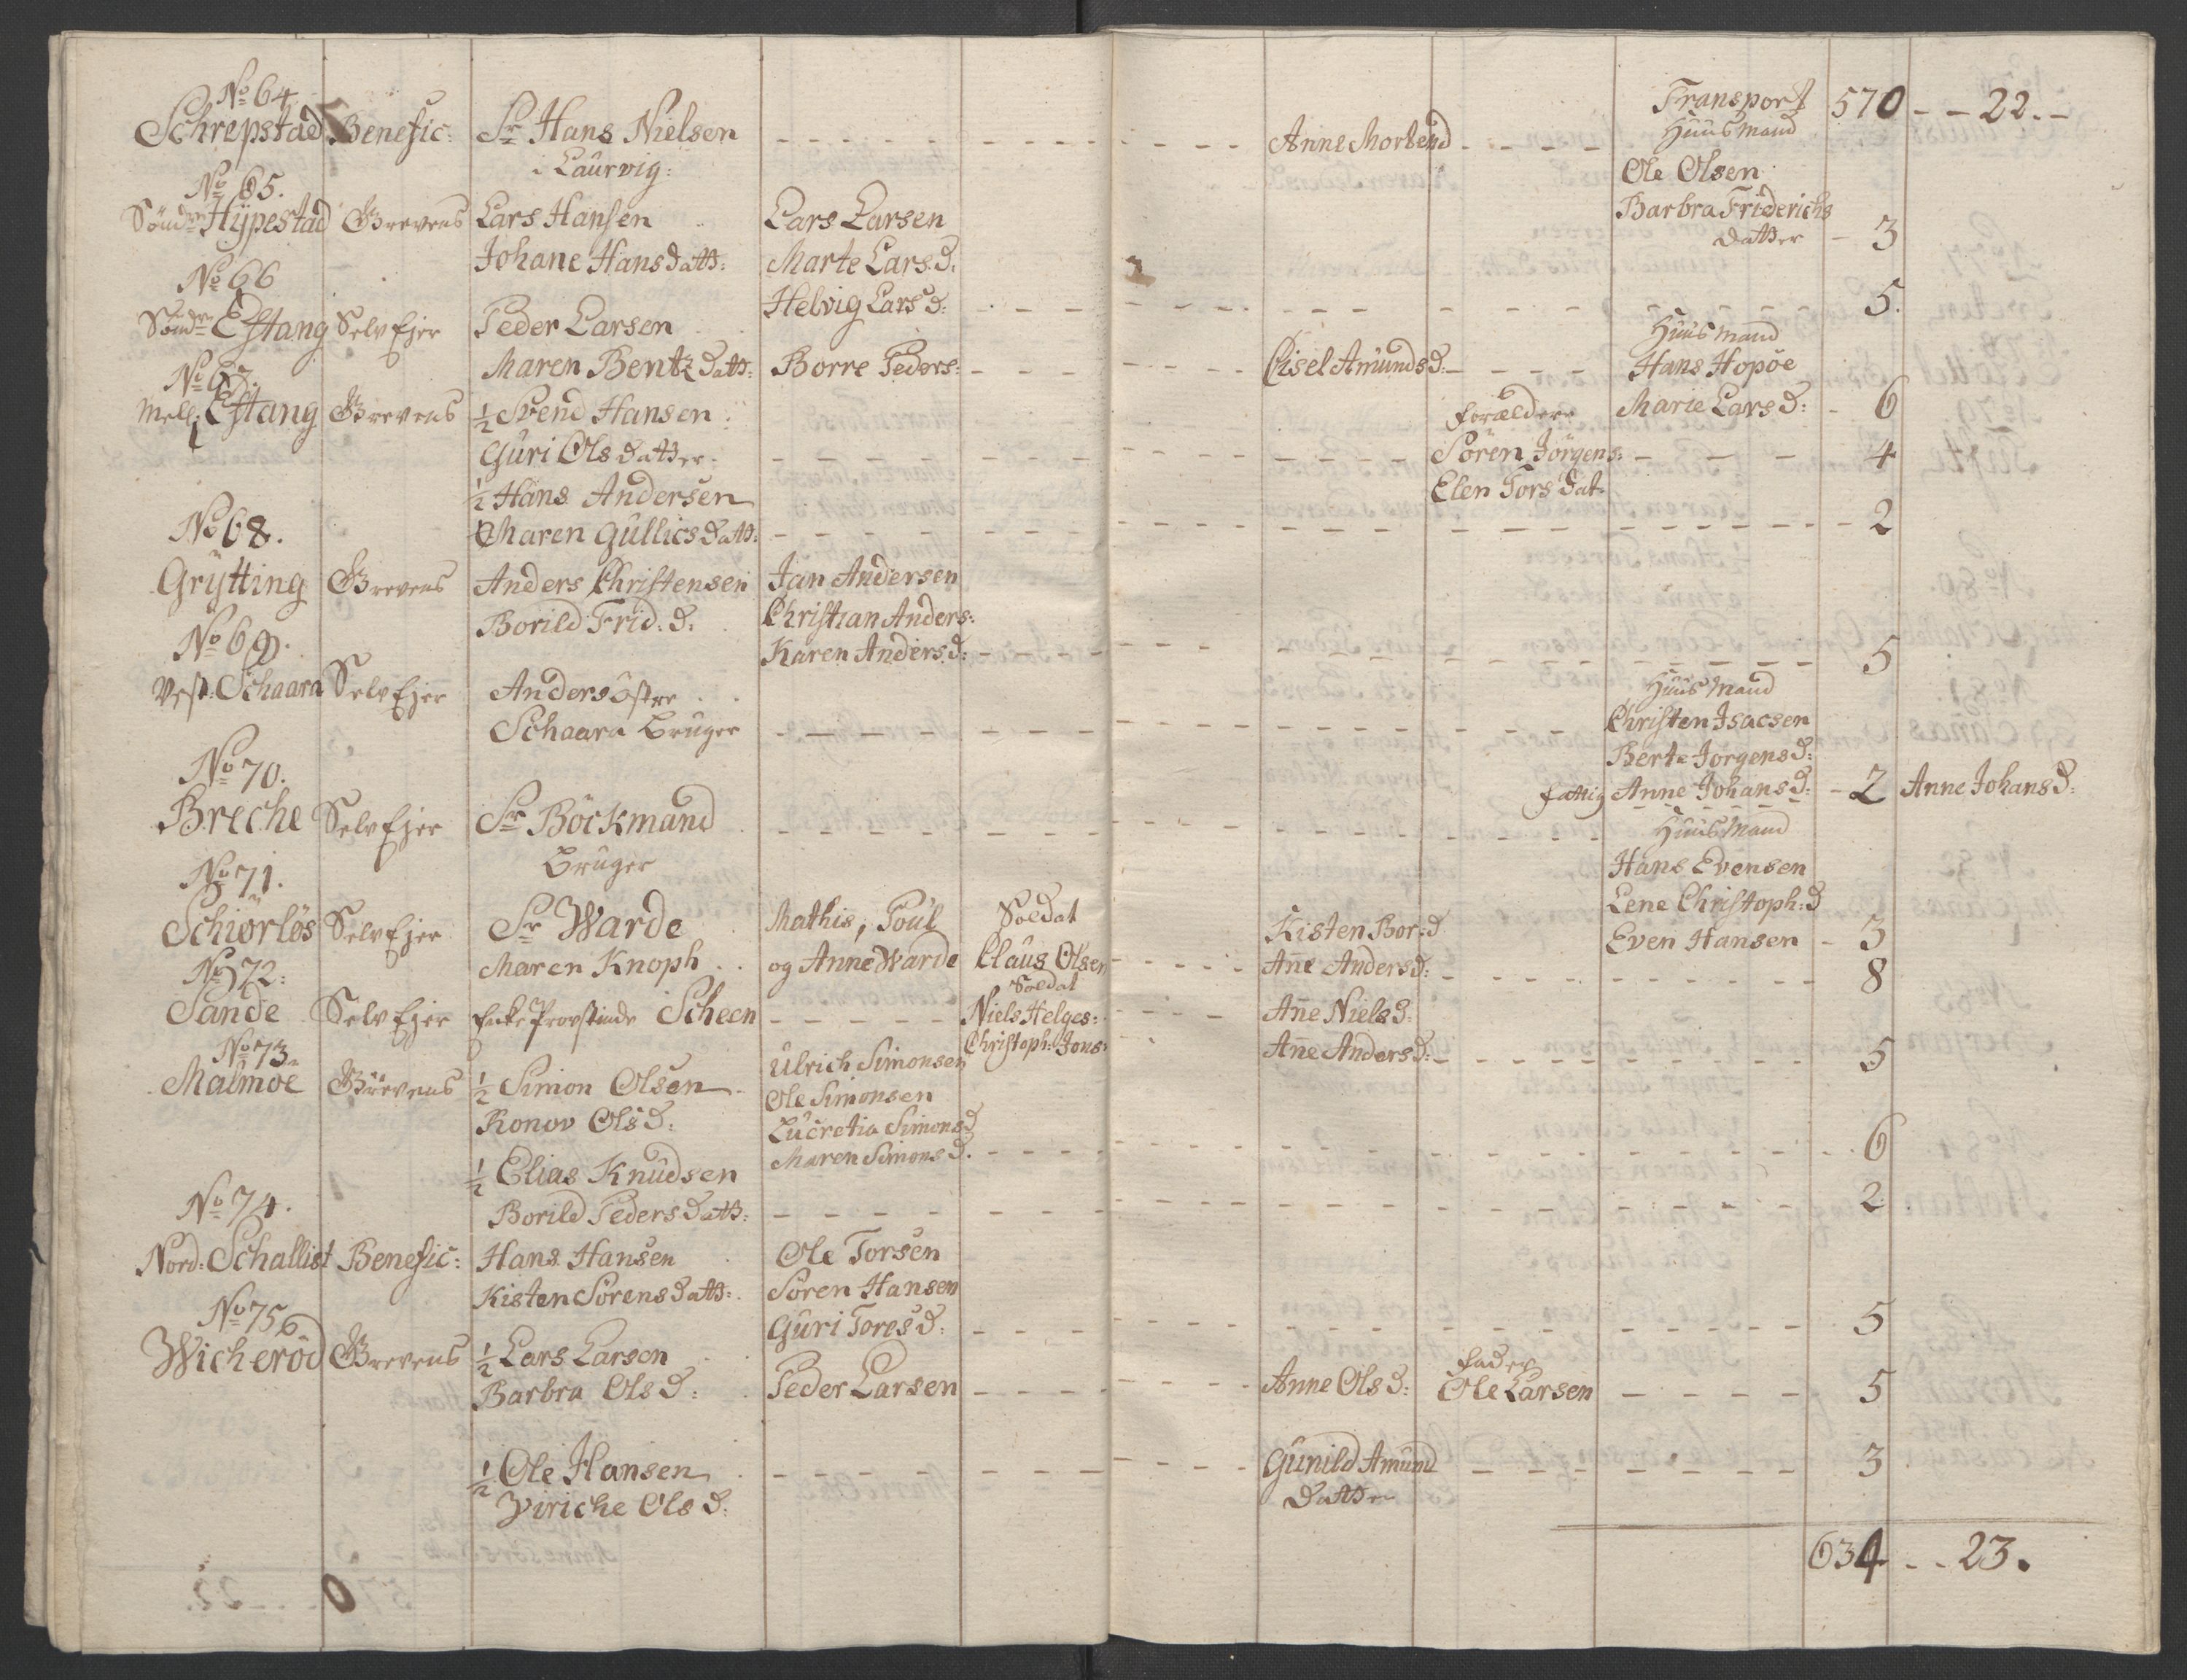 Transport 570 - - 22. -
No 64
Schrepstad Benefic: Sr Hans Nielsen - - - - Anne Mortensd - - - Huusmand
i Laurvig: Ole Olsen
No 65.
Søndre Hÿpestad Grevens Lars Hansen Lars Larsen Barbra Friderichs
datter - 3
Johane Hansdatt: Marte Lars.d.
No 66
Helvig Lars d: - - - - 5.
Søndre Estang Selv Ejer Peder Larsen Huusmand
Maren Bentz datt: Borre Peders: - - - Cisel Amunds d: - - - Hans Hopøe
No 67.
Mell: Estang Grevens ½ Svend Hansen forældere Marie Lars d: - 6
Guri Ols datter. - - - - Søren Jørgens: - - - 4
½ Hans Andersen Elen Tors dat.
Maren Gullics datt: - - - - 2
No 68.
Grÿtting Grevens Anders Christensen Jan Andersen
Borild Frid: d: Christian Anders:
No 69.
Karen Anders.d: - - - - 5
Vest: Schaara Selv Ejer Anders Østre Huusmand
Schaara Bruger - - - - Christen Isacsen
Berte Jørgens d:
No 70.
fattig Anne Johans d: - 2 Anne Johans d:
Breche Selv Ejer Sr Böckmand - - - - Huusmand
Bruger Hans Evensen
No 71.
Lene Christoph: d
Schiørløs Selv Ejer Sr Warde Mathis, Poul Soldat Kisten Bor: d Even Hansen - 3
Maren Knoph og Anne Warde Claus Olsen - - - Añe Anders d: - - - 8
No 72:
Soldat
Sande Selv Ejer Enke Provstinde Scheen - - - Niels Helges: - - - Añe Niels d:
Christoph: Jons: Añe Anders d: - - - 5
No 73.
Malmoe Grevens ½ Simon Olsen Ulrich Simonsen
Ole Simonsen
Ronov Ols d: Lucretia Simons d
Maren Simons d. - - - - 6
½ Elias Knudsen
Borild Peders datt: - - - - 2
No 74.
Nord: Schallist Benefic: Hans Hansen Ole Torsen
Kisten Sørens datt: Søren Hansen
Guri Tores d: - - - - 5
No 75
Wicherød Grevens ½ Lars Larsen fader
Barbra Ols d: Peder Larsen - - - Anne Ols d: Ole Larsen - - - 5
½ Ole Hansen - - - - Gunild Amund - - - 3
Viriche Ols d: datter
634 - - 23.